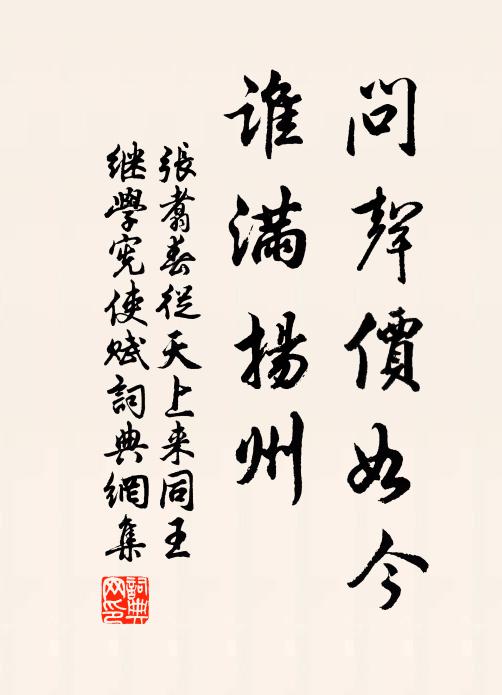 問聲價如今
誰滿揚州
張翥春從天上来同王
继學宪使赋詞典網集
詞典网印